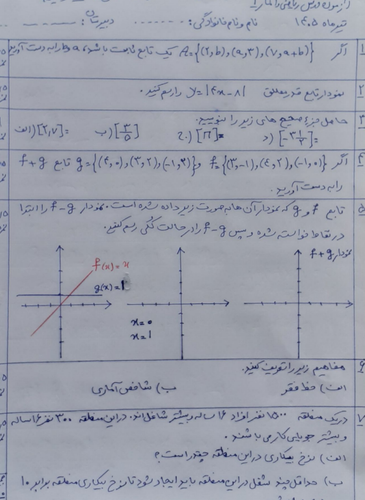 آزمون درس ریاضی و آمار
تیرماه ۱۴۰۵ نام و نام خانوادگی: دبیرستان:
۱ اگر R={(۲,b),(a,۳),(۷,a+b)} یک تابع ثابت باشد a و b را به دست آورید
۲ نمودار تابع قدر مطلق y=|۴x-۸| را رسم کنید.
۳ حاصل جزء صحیح های زیر را بنویسید.
الف) [۲,۷]= ب) [۳/۵] ج) [π]= د) [-۳ ۱/۲]=
۴ اگر f={(۳,-۱),(۴,۲),(-۱,۰)} و g={(۴,۰),(۳,۲),(-۱,۳)} تابع f+g
را به دست آورید.
۵ تابع f و g که نمودار آن ها به صورت زیر داده شده است. نمودار f-g را ابتدا
در نقاط خواسته شده و سپس f-g را در حالت کلی رسم کنید.
f(x)=x
g(x)=1
x=0
x=1
نمودار f+g
۶ مفاهیم زیر را تعریف کنید.
الف) خط فقر ب) شاخص آماری
۷ در یک منطقه ۱۵۰۰ نفر افراد ۱۶ ساله و بیشتر شاغل اند. در این منطقه ۳۰۰ نفر ۱۶ ساله
و بیشتر جویای کار می باشند.
الف) نرخ بیکاری در این منطقه چقدر است؟
ب) حداقل چند شغل در این منطقه باید ایجاد شود تا نرخ بیکاری منطقه برابر ۱۰